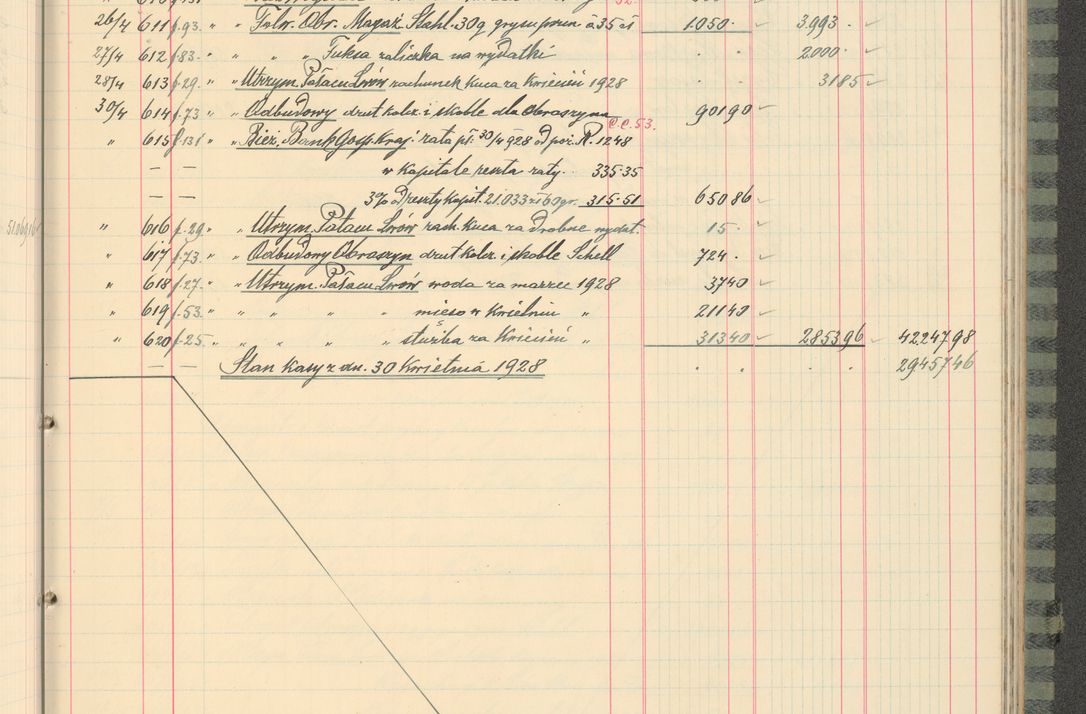 26/4 611 f.93. " " Folw. Obr. Magaż. Stahl. 30 q grysu pszen à 35 zł 1.050.- 3.993.-
27/4 612 f.83. " " " " Fuksa zaliczka na wydatki 2.000.-
28/4 613 f.29. " " Utrzym. Pałacu Lwów rachunek Kuca za Kwiecień 1928 31 85
30/4 614 f.73 " " Odbudowy drut kolcz. i skoble dla Obroszyna 901 90
C.C. 53.
" 615 f.131 " " Bież. Bank Gosp. Kraj. rata pł. 30/4 928 od poż. R. 1248
— — w kapitale reszta raty. 335.35
— — 3% od reszty kapit. 21.033 zł 60 gr. 315.51 650 86
" 616 f.29. " " Utrzym. Pałacu Lwów rach. Kuca za drobne wydat. 15.-
" 617 f.73. " " Odbudowy Obroszyn drut kolcz. i skoble Schell 724.-
" 618 f.27. " " Utrzym. Pałacu Lwów woda za marzec 1928 37 40
" 619 f.53. " " " " " mięso w Kwietniu " 211 40
" 620 f.25. " " " " " służba za Kwiecień " 313 40 2853 96 42247 98
— — Stan Kasy z dn. 30 Kwietnia 1928 . . . . 29457 46